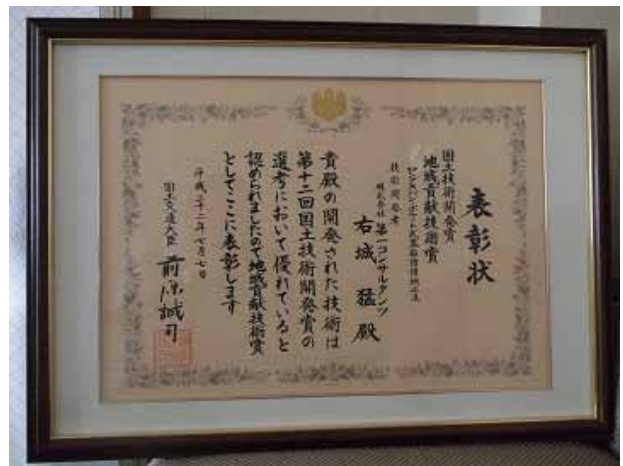 表彰状
国土技術開発賞
地域貢献技術賞
技術開発者
株式会社 第一コンサルタンツ
右城 猛 殿
貴殿の開発された技術は
第十二回国土技術開発賞の
選考において優れていると
認められましたので地域貢献技術賞
としてここに表彰します
平成二十二年七月七日
国土交通大臣 前原誠司